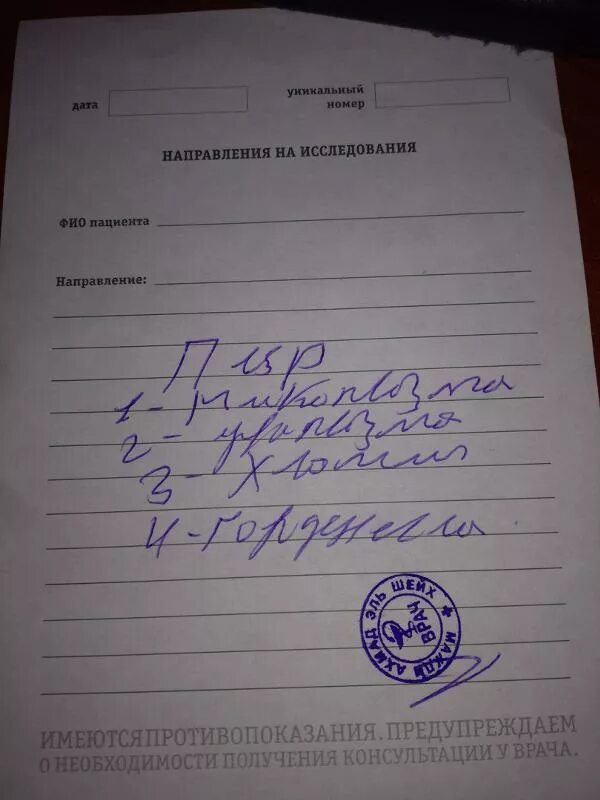 дата
уникальный
номер
НАПРАВЛЕНИЯ НА ИССЛЕДОВАНИЯ
ФИО пациента
Направление:
ПЦР
1 - микоплазма
2 - уреплазма
3 - Хламид
4 - Горденелла
МАЖДИ АХМАД ЭЛЬ ШЕЙХ
ВРАЧ
ИМЕЮТСЯ ПРОТИВОПОКАЗАНИЯ. ПРЕДУПРЕЖДАЕМ
О НЕОБХОДИМОСТИ ПОЛУЧЕНИЯ КОНСУЛЬТАЦИИ У ВРАЧА.